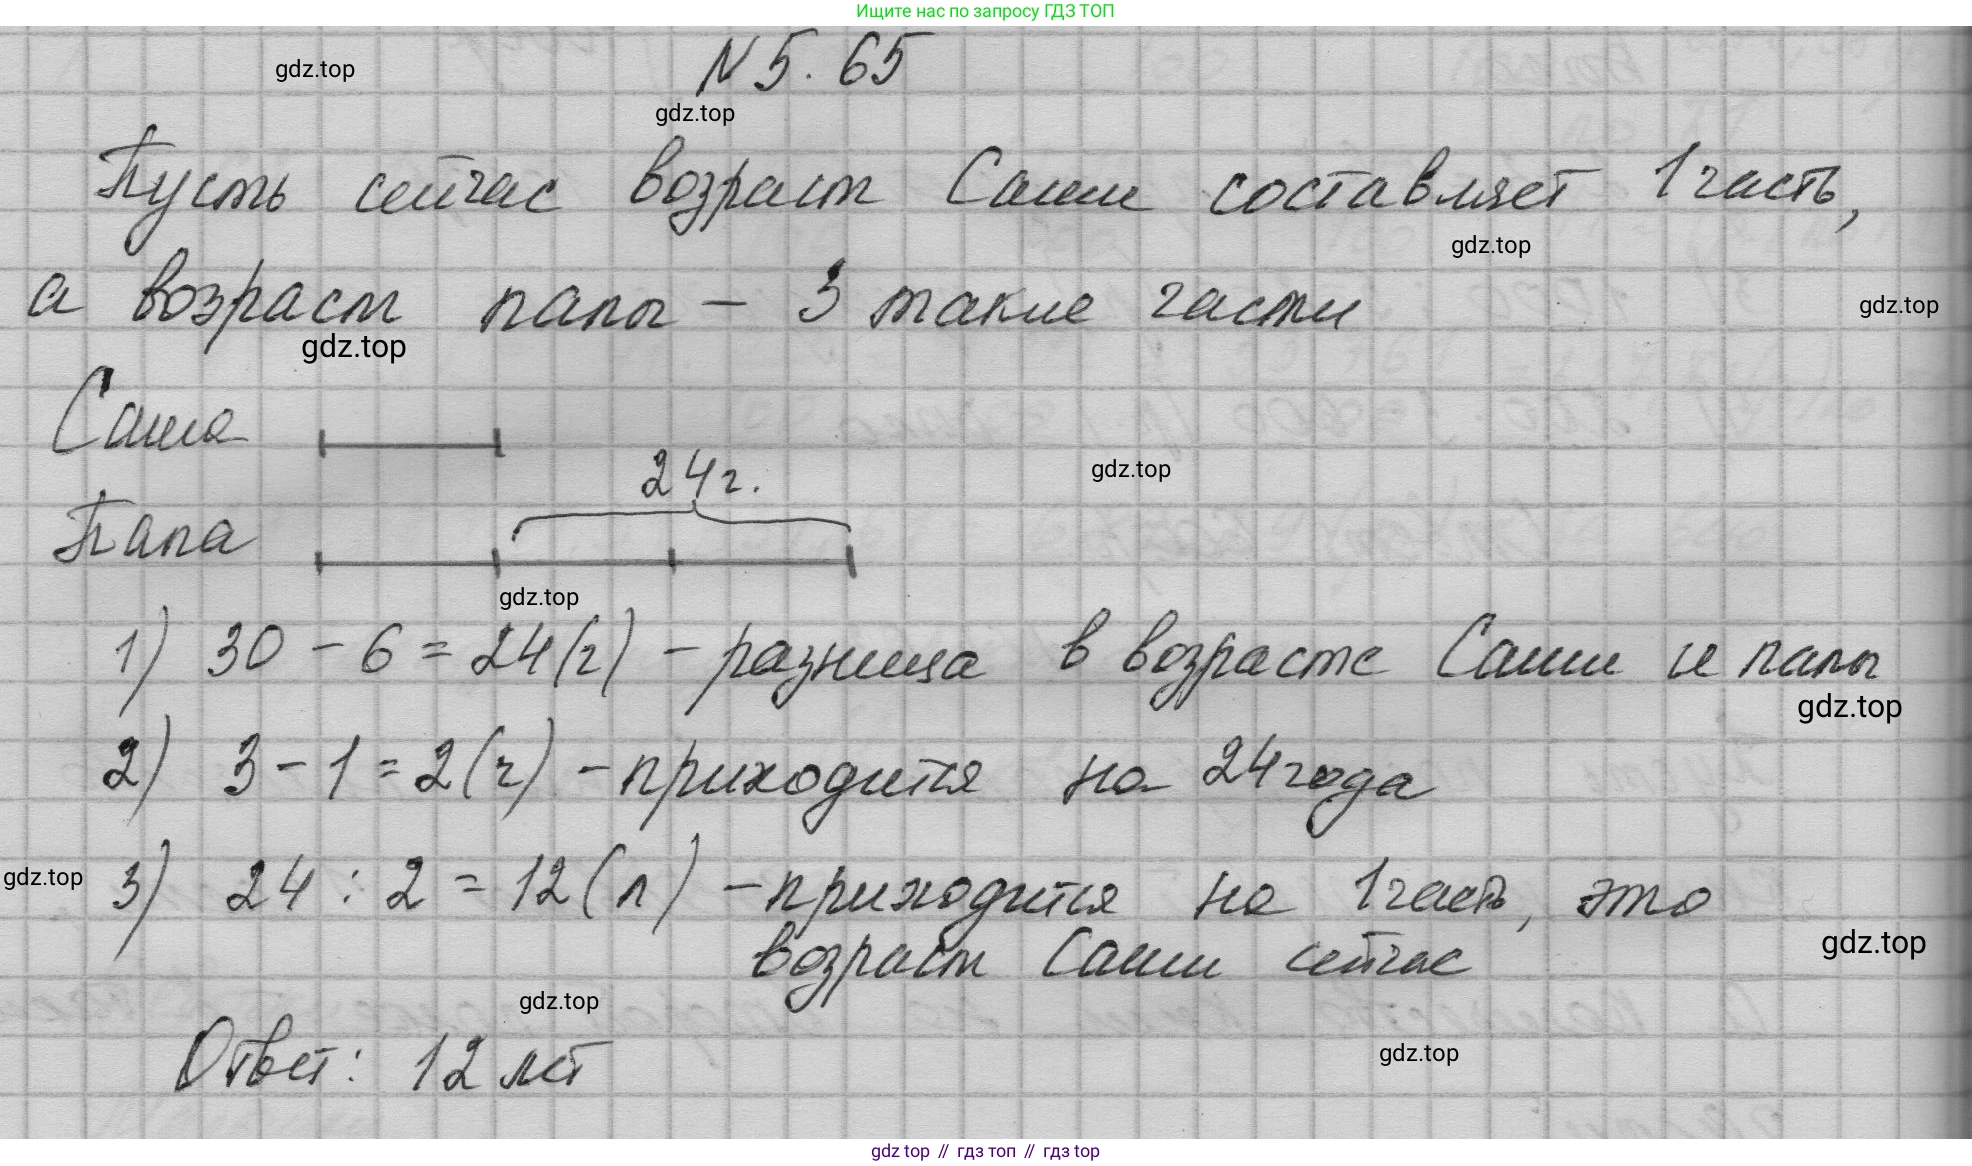 Ищите нас по запросу ГДЗ ТОП
№ 5.65
gdz.top
gdz.top
Пусть сейчас возраст Саши составляет 1 часть,
gdz.top
а возраст папы – 3 такие части
gdz.top
gdz.top
Саша
24 г.
gdz.top
Папа
gdz.top
1) 30 – 6 = 24 (г) – разница в возрасте Саши и папы
gdz.top
2) 3 – 1 = 2 (ч) – приходится на 24 года
3) 24 : 2 = 12 (л) – приходится на 1 часть, это
gdz.top
возраст Саши сейчас
gdz.top
gdz.top
Ответ: 12 лет
gdz.top
gdz top // гдз топ // гдз top